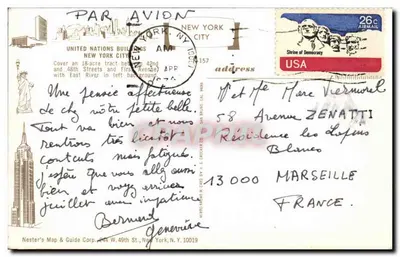 PAR AVION
UNITED NATIONS BUILDINGS
NEW YORK CITY
Cover an 18-acre tract between 42nd
and 48th Streets and First Avenue
with East River in left
NEW YORK
CITY
NEW YORK, NY
AM
APR
address
26c
AIRMAIL
Shrine of Democracy
USA
Une pensée affectueuse
de chez notre petite belle.
Tout va bien et nous
rentrons très bientôt
contents mais fatigués.
J'espère que vous allez aussi
bien et vous
juillet avec impatience
Bernard
Geneviève
Mr et Me Marc Vermorel
58 Avenue ZENATTI
Résidence les Lapins
Blancs
13000 MARSEILLE
FRANCE.
Nester's Map & Guide Corp. W. 49th St., New York, N.Y. 10019